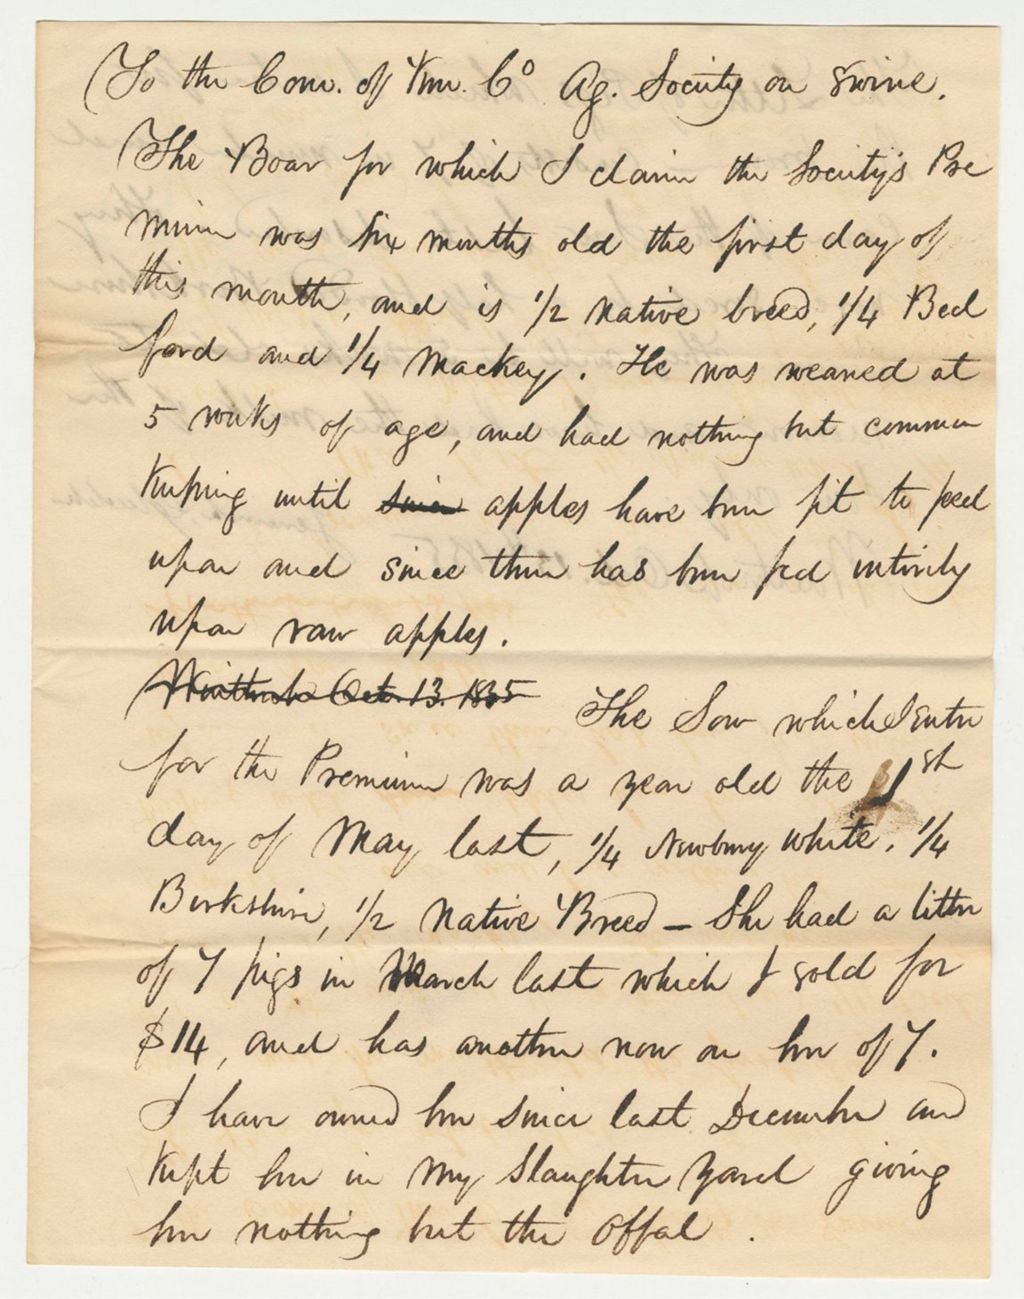 To the Com. of Ken. Co Ag. Society on Swine.
The Boar for which I claim the Society's Pre
mium was six months old the first day of
this month, and is 1/2 native breed, 1/4 Bed
ford and 1/4 Mackey. He was weaned at
5 weeks of age, and had nothing but common
keeping until since apples have been fit to feed
upon and since then has been fed entirely
upon raw apples.
Winthrop Oct. 13. 1835 The Sow which I enter
for the Premium was a year old the 1st
day of May last, 1/4 Newbury White, 1/4
Berkshire, 1/2 Native Breed – She had a litter
of 7 pigs in March last which I sold for
$14, and has another now on her of 7.
I have owned her since last December and
kept her in my Slaughter Yard giving
her nothing but the Offal.